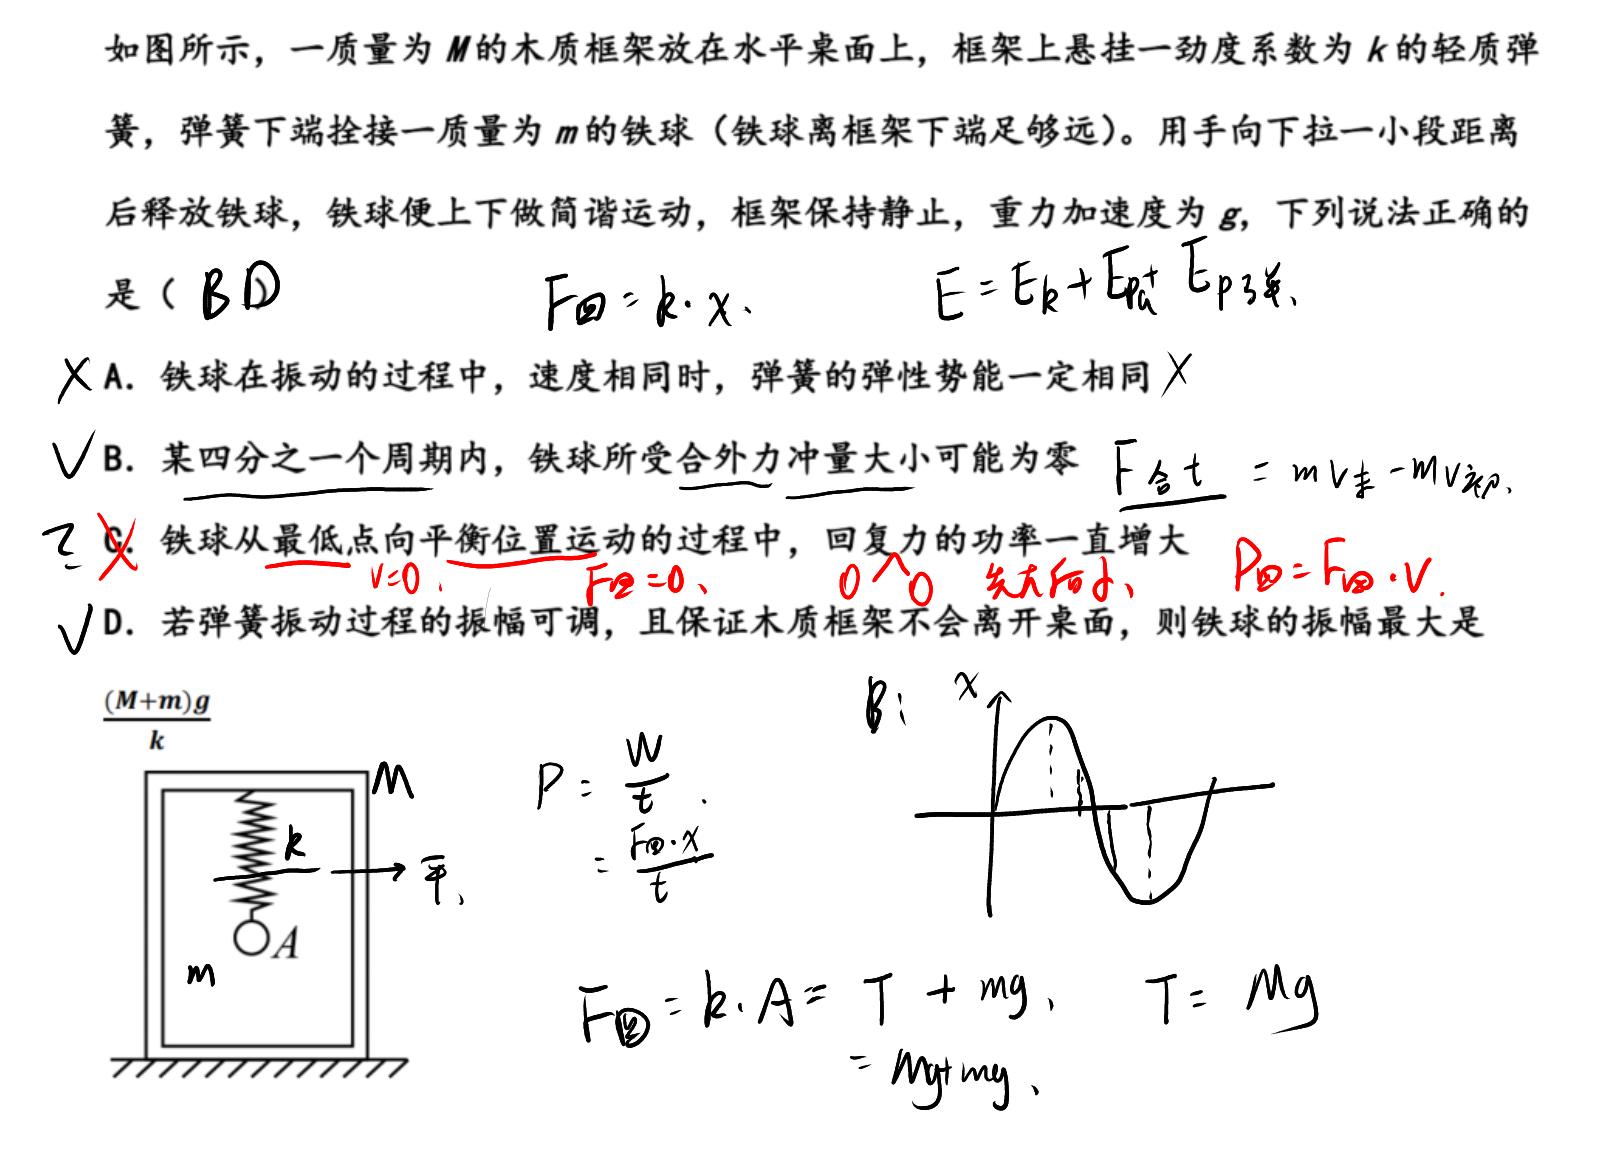 如图所示，一质量为 M 的木质框架放在水平桌面上，框架上悬挂一劲度系数为 k 的轻质弹
簧，弹簧下端拴接一质量为 m 的铁球（铁球离框架下端足够远）。用手向下拉一小段距离
后释放铁球，铁球便上下做简谐运动，框架保持静止，重力加速度为 g，下列说法正确的
是（ BD ）
F回 = k·x、 E = Ek + EpG + Ep弹、
× A. 铁球在振动的过程中，速度相同时，弹簧的弹性势能一定相同 ×
√ B. 某四分之一个周期内，铁球所受合外力冲量大小可能为零 F合t = mv末 - mv初、
? × C. 铁球从最低点向平衡位置运动的过程中，回复力的功率一直增大
v=0、 F回=0、 0 ∧ 0 先大后小、 P回 = F回·v.
√ D. 若弹簧振动过程的振幅可调，且保证木质框架不会离开桌面，则铁球的振幅最大是
(M+m)g
k
B: x
M
P = W/t .
k
= F回·x/t
平、
A
m
F回 = k·A = T + mg、 T = Mg
= Mg+mg、